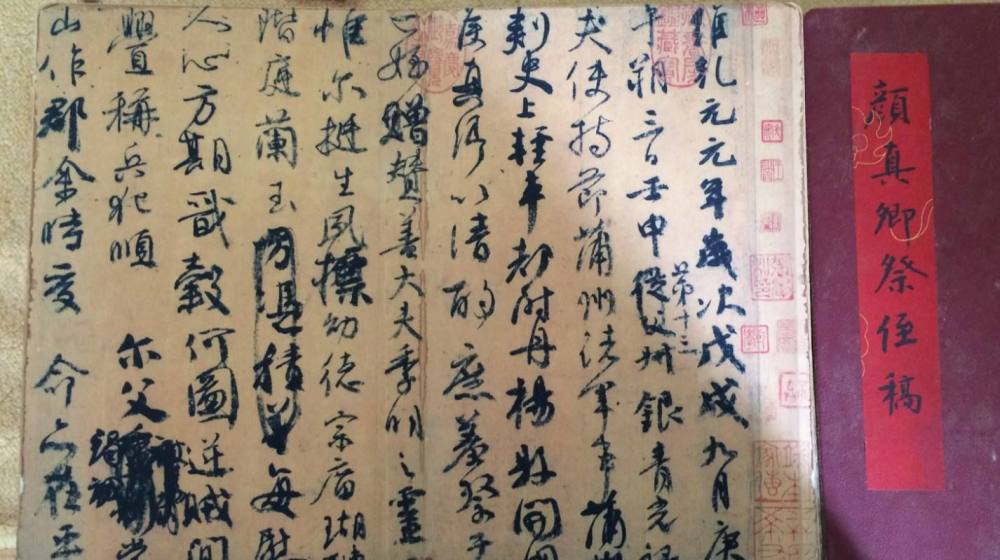 顏真卿祭侄稿
維乾元元年歲次戊戌九月庚
午朔三日壬申第十三從父銀青光祿
夫使持節蒲州諸軍事蒲州
刺史上輕車都尉丹楊縣開國
侯真卿以清酌庶羞祭于
亡姪贈贊善大夫季明之靈
惟爾挺生夙標幼德宗廟瑚
階庭蘭玉每慰
人心方期戩穀何圖逆賊間
釁稱兵犯順 爾父竭誠常
山作郡余時受 命亦在平